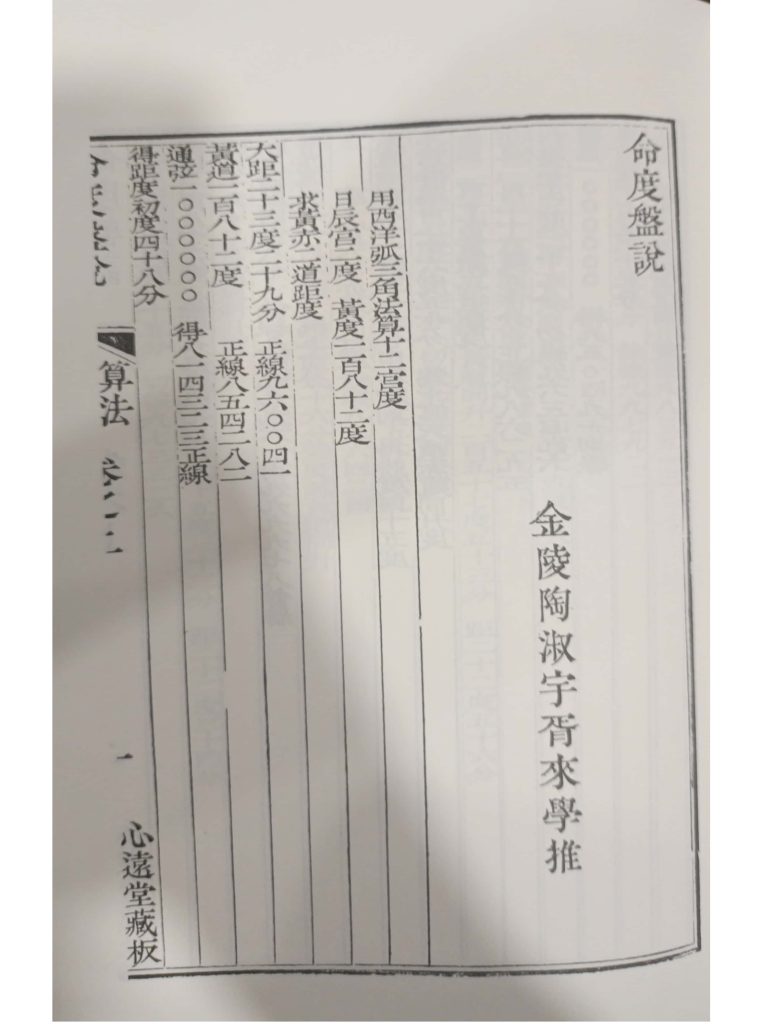 命度盤說
金陵陶淑宇胥來學推
用西洋弧三角法算十二宮度
日辰宮二度 黃度一百八十二度
求黃赤二道距度
大距二十三度二十九分 正線九六〇〇四一
黃道一百八十二度 正線八五四二八二
通弦一〇〇〇〇〇〇 得八一四三二三正線
得距度初度四十八分
命度盤說 算法 卷之二 一 心遠堂藏板